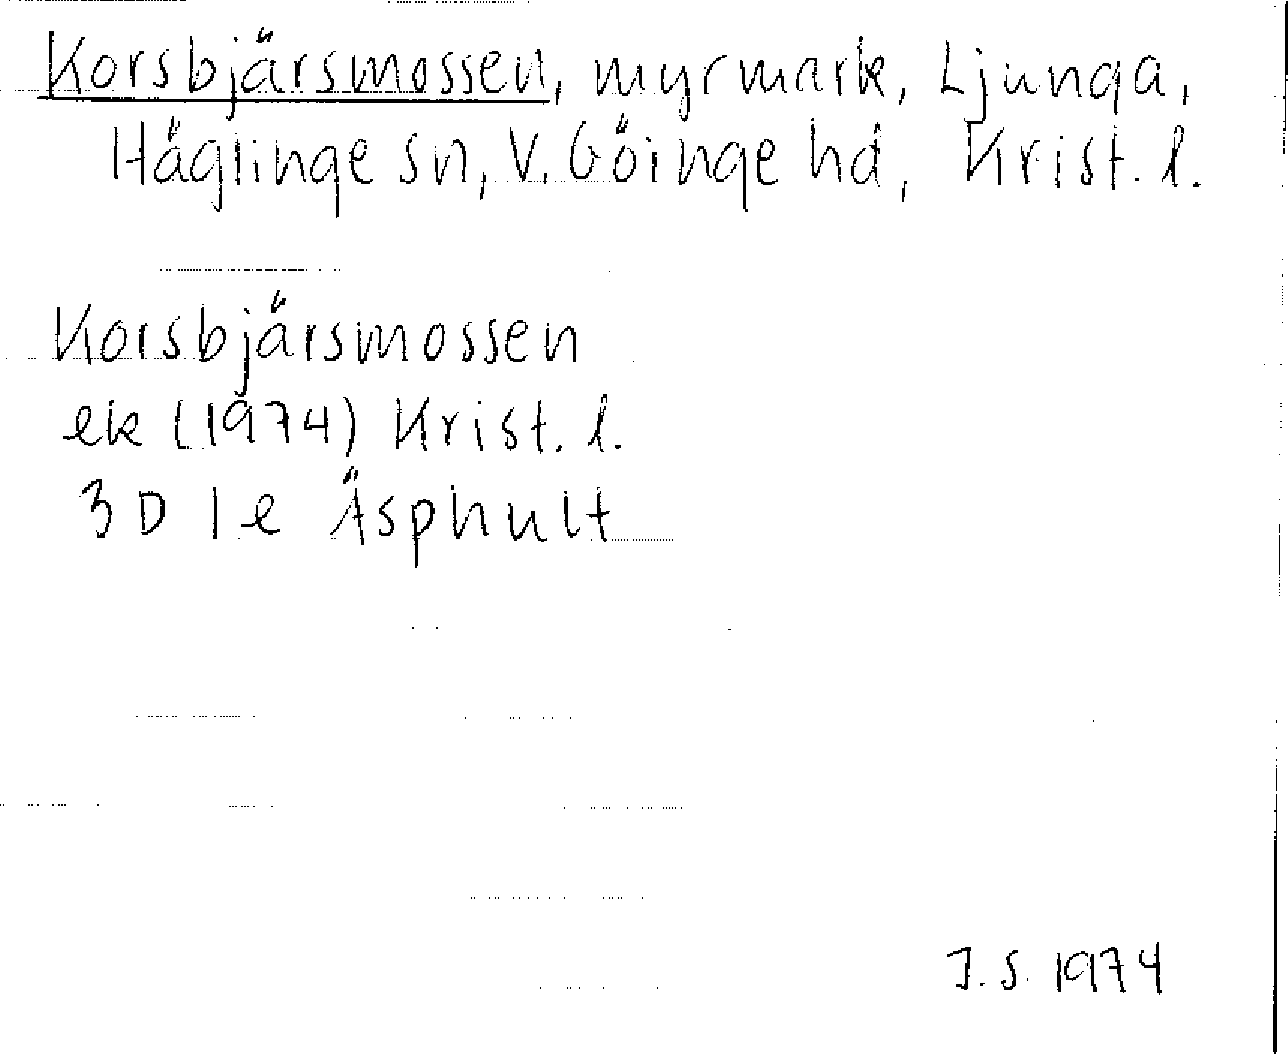 Korsbjärsmossen, myrmark, Ljunga,
Häglinge sn, V. Göinge hd, Krist. l.
Korsbjärsmossen
ek (1974) Krist. l.
3D 1e Äsphult
J.S. 1974